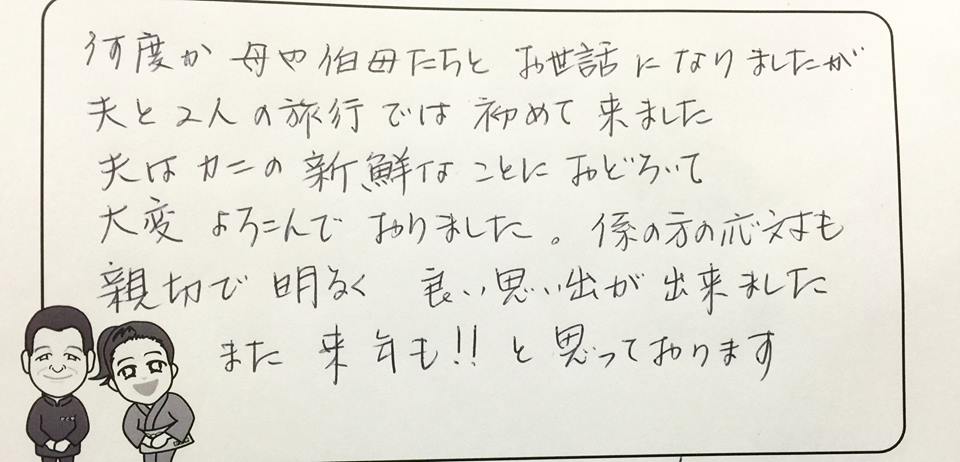 何度か 母や伯母たちと お世話になりましたが
夫と2人の旅行では初めて来ました
夫はカニの新鮮なことにおどろいて
大変よろこんでおりました。係の方の応対も
親切で明るく 良い思い出が出来ました
また来年も!!と思っております